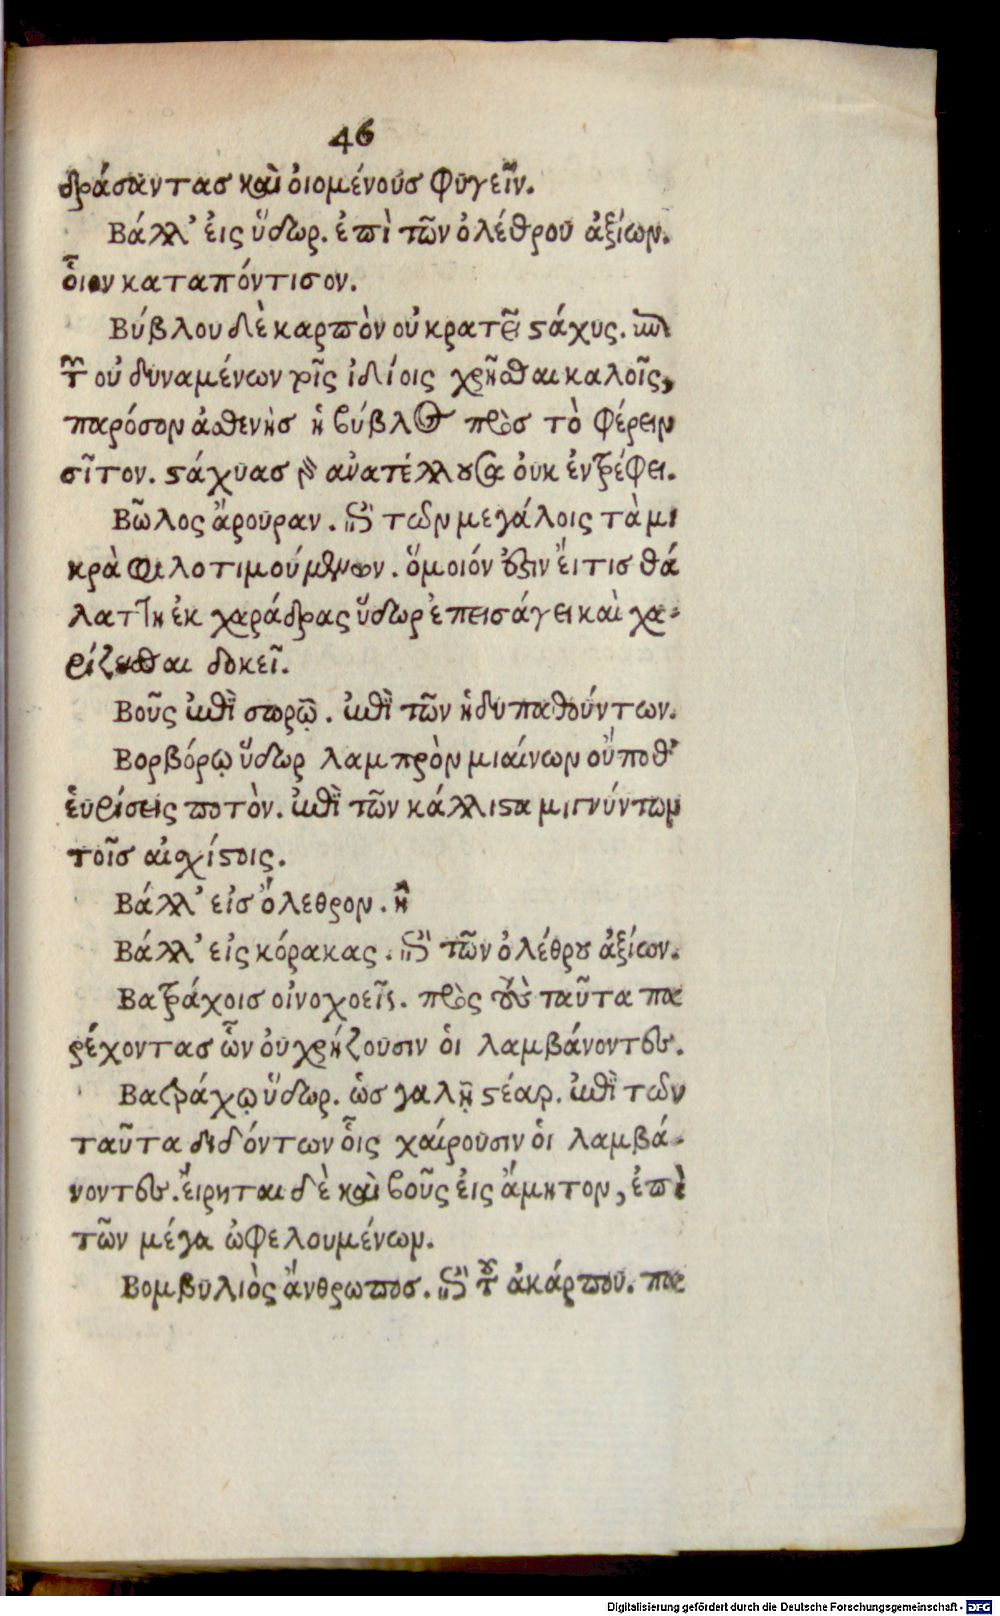 46
δράσαντασ καὶ ὀιομένουσ φυγεῖν.
Βάλλ' ἐις ὕδωρ. ἐπὶ τῶν ὀλέθρου ἀξίων.
οἷον καταπόντισον.
Βύβλου δὲ καρπὸν οὐ κρατεῖ στάχυς. ἐπὶ
τῶν οὐ δυναμένων τοῖς ἰδίοις χρῆσθαι καλοῖς,
παρόσον ἀσθενὴσ ἡ βύβλος πρὸσ τὸ φέρειν
σῖτον. στάχυασ γὰρ ἀνατέλλουσα ὀυκ ἐντρέφει.
Βῶλος ἄρουραν. ἐπὶ τῶν μεγάλοις τὰ μι
κρὰ φιλοτιμούμενων. ὅμοιόν ἐστιν ἔιτισ θά
λαττῃ ἐκ χαράδρας ὕδωρ ἐπεισάγει καὶ χα-
ρίζεσθαι δοκεῖ.
Βοῦς ἐπὶ σωρῷ. ἐπὶ τῶν ἡδυπαθούντων.
Βορβόρῳ ὕδωρ λαμπρὸν μιαίνων οὔποθ'
ἑυρίσεις ποτὸν. ἐπὶ τῶν κάλλιστα μιγνύντων
τοῖσ αἰσχίστοις.
Βάλλ' εἰσ ὄλεθρον. ἢ
Βάλλ' εἰς κόρακας. ἐπὶ τῶν ὀλέθρου ἀξίων.
Βατράχοισ οἰνοχοεῖς. πρὸς τοὺς ταῦτα πα
ρέχοντασ ὧν ὀυ χρήζουσιν ὁι λαμβάνοντες.
Βατράχῳ ὕδωρ. ὡσ γαλῇ στέαρ. ἐπὶ τῶν
ταῦτα διδόντων οἷς χαίρουσιν ὁι λαμβά-
νοντες. ἔιρηται δὲ καὶ βοῦς ἐις ἄμητον, ἐπὶ
τῶν μέγα ὠφελουμένων.
Βομβυλιὸς ἄνθρωποσ. ἐπὶ τοῦ ἀκάρπου. πα
Digitalisierung gefördert durch die Deutsche Forschungsgemeinschaft - DFG